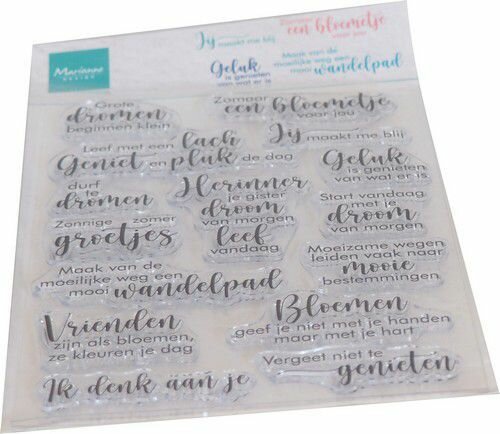 Marianne
DESIGN
Jij maakt me blij
Zomaar
een bloemetje
voor jou
Geluk
is genieten
van wat er is
Maak van de
moeilijke weg een
mooi wandelpad
Grote
dromen
beginnen klein
Zomaar
een bloemetje
voor jou
Leef met een lach
Geniet en pluk de dag
Jij maakt me blij
durf
te
dromen
Herinner
je gister
droom
van morgen
leef
vandaag
Geluk
is genieten
van wat er is
Zonnige zomer
groetjes
Start vandaag
met je
droom
van morgen
Maak van de
moeilijke weg een
mooi wandelpad
Moeizame wegen
leiden vaak naar
mooie
bestemmingen
Vrienden
zijn als bloemen,
ze kleuren je dag
Bloemen
geef je niet met je handen
maar met je hart
Ik denk aan je
Vergeet niet te
genieten